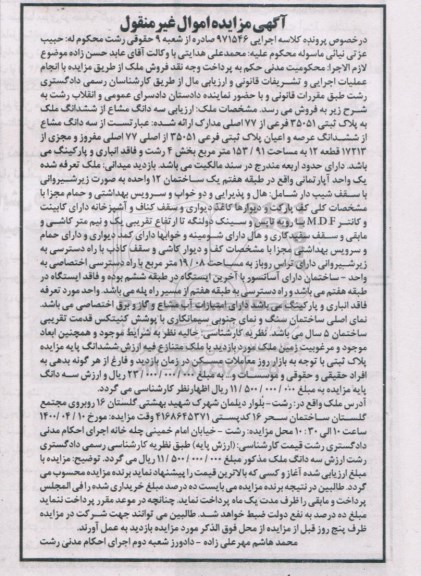 آگهی مزایده اموال غیر منقول
درخصوص پرونده کلاسه اجرایی ۹۷۱۵۴۶ صادره از شعبه ۹ حقوقی رشت محکوم له: حبیب
عزتی نیائی ماسوله محکوم علیه: محمدعلی هدایتی با وکالت آقای عابد حسن زاده موضوع
لازم الاجرا: محکومیت مدنی حکم به پرداخت وجه نقد فروش ملک از طریق مزایده با انجام
عملیات اجرایی و تشریفات قانونی و ارزیابی مال از طریق کارشناسان رسمی دادگستری
رشت طبق مقررات قانونی و با حضور نماینده دادستان دادسرای عمومی و انقلاب رشت به
شرح زیر به فروش می رسد. مشخصات ملک: ارزیابی سه دانگ مشاع از ششدانگ ملک
به پلاک ثبتی ۳۵۰۵۱ فرعی از ۷۷ اصلی مدارک ارائه شده: عبارتست از سه دانگ مشاع
از ششدانگ عرصه و اعیان پلاک ثبتی فرعی ۳۵۰۵۱ از اصلی ۷۷ اصلی مفروز و مجزی از
۱۷۲۱۳ قطعه ۱۲ به مساحت ۱۵۳/۹۱ متر مربع بخش ۴ رشت و فاقد انباری و پارکینگ می
باشد. دارای حدود اربعه مندرج در سند مالکیت می باشد. بازدید میدانی: ملک تعرفه شده
یک واحد آپارتمانی واقع در طبقه هفتم یک ساختمان ۱۲ واحده به صورت زیرشیروانی
با سقف شیب دار شامل: هال و پذیرایی و دو خواب و سرویس بهداشتی و حمام مجزا با
مشخصات کلی کف پارکت و دیوارها کاغذ دیواری و سقف کناف و آشپزخانه دارای کابینت
و کانتر M.D.F با رویه تاپس و سینک دولنگه تا ارتفاع تقریبی یک و نیم متر کاشی و
مابقی و سقف سفیدکاری و هال دارای شومینه و خوابها دارای کمد دیواری و دارای حمام
و سرویس بهداشتی مجزا با مشخصات کف و دیوار کاشی و سقف کاذب با راه دسترسی به
زیرشیروانی دارای تراس روباز به مساحت ۱۹/۰۸ متر مربع با راه دسترسی اختصاصی به
واحد - ساختمان دارای آسانسور با آخرین ایستگاه در طبقه ششم بوده و فاقد ایستگاه در
طبقه هفتم می باشد و راه دسترسی به طبقه هفتم از مسیر راه پله می باشد. واحد مورد تعرفه
فاقد انباری و پارکینگ می باشد دارای امتیازات آب مشاع و گاز و برق اختصاصی می باشد.
نمای اصلی ساختمان سنگ و نمای جنوبی سیمانکاری با پوشش کنیتکس قدمت تقریبی
ساختمان ۵ سال می باشد. نظریه کارشناسی: خالیه نظر به شرایط موجود و همچنین ابعاد
موجود و مرغوبیت زمین ملک مورد بازدید با ملک متنازع فیه ارزش ششدانگ پایه مزایده
پلاک ثبتی با توجه به بازار روز معاملات مسکن در زمان بازدید و فارغ از هر گونه بدهی به
افراد حقیقی و حقوقی و مستندات و به مبلغ ۲۳/۰۰۰/۰۰۰/۰۰۰ ریال و ارزش سه دانگ
پایه مزایده به مبلغ ۱۱/۵۰۰/۰۰۰/۰۰۰ ریال اظهارنظر کارشناسی می گردد.
آدرس ملک واقع در: رشت - بلوار دیلمان شهرک شهید بهشتی گلستان ۱۶ روبروی مجتمع
گلستان ساختمان سحر ۱۶ کدپستی ۴۱۶۸۶۴۵۳۷۱ وقت مزایده: مورخ ۱۴۰۰/۰۴/۱۰
ساعت ۱۰ الی ۱۰:۳۰ محل مزایده: رشت - خیابان امام خمینی چله خانه اجرای احکام مدنی
دادگستری رشت قیمت کارشناسی: (ارزش پایه) طبق نظریه کارشناسی رسمی دادگستری
رشت ارزش سه دانگ ملک مذکور مبلغ ۱۱/۵۰۰/۰۰۰/۰۰۰ ریال می گردد. توضیح: مزایده با
مبلغ ارزیابی شده آغاز و کسی که بالاترین قیمت را پیشنهاد نماید برنده مزایده محسوب می
گردد. طالبین در نتیجه برنده مزایده می بایست ده درصد مبلغ خریداری شده را فی المجلس
پرداخت و مابقی را ظرف مدت یک ماه پرداخت نماید. چنانچه در موعد مقرر پرداخت ننماید
مبلغ ده درصد به نفع دولت ضبط خواهد شد. طالبین می توانند جهت شرکت در مزایده
ظرف پنج روز قبل از مزایده از محل فوق الذکر مورد مزایده بازدید به عمل آورند.
محمد هاشم مهرعلی زاده - دادورز شعبه دوم اجرای احکام مدنی رشت